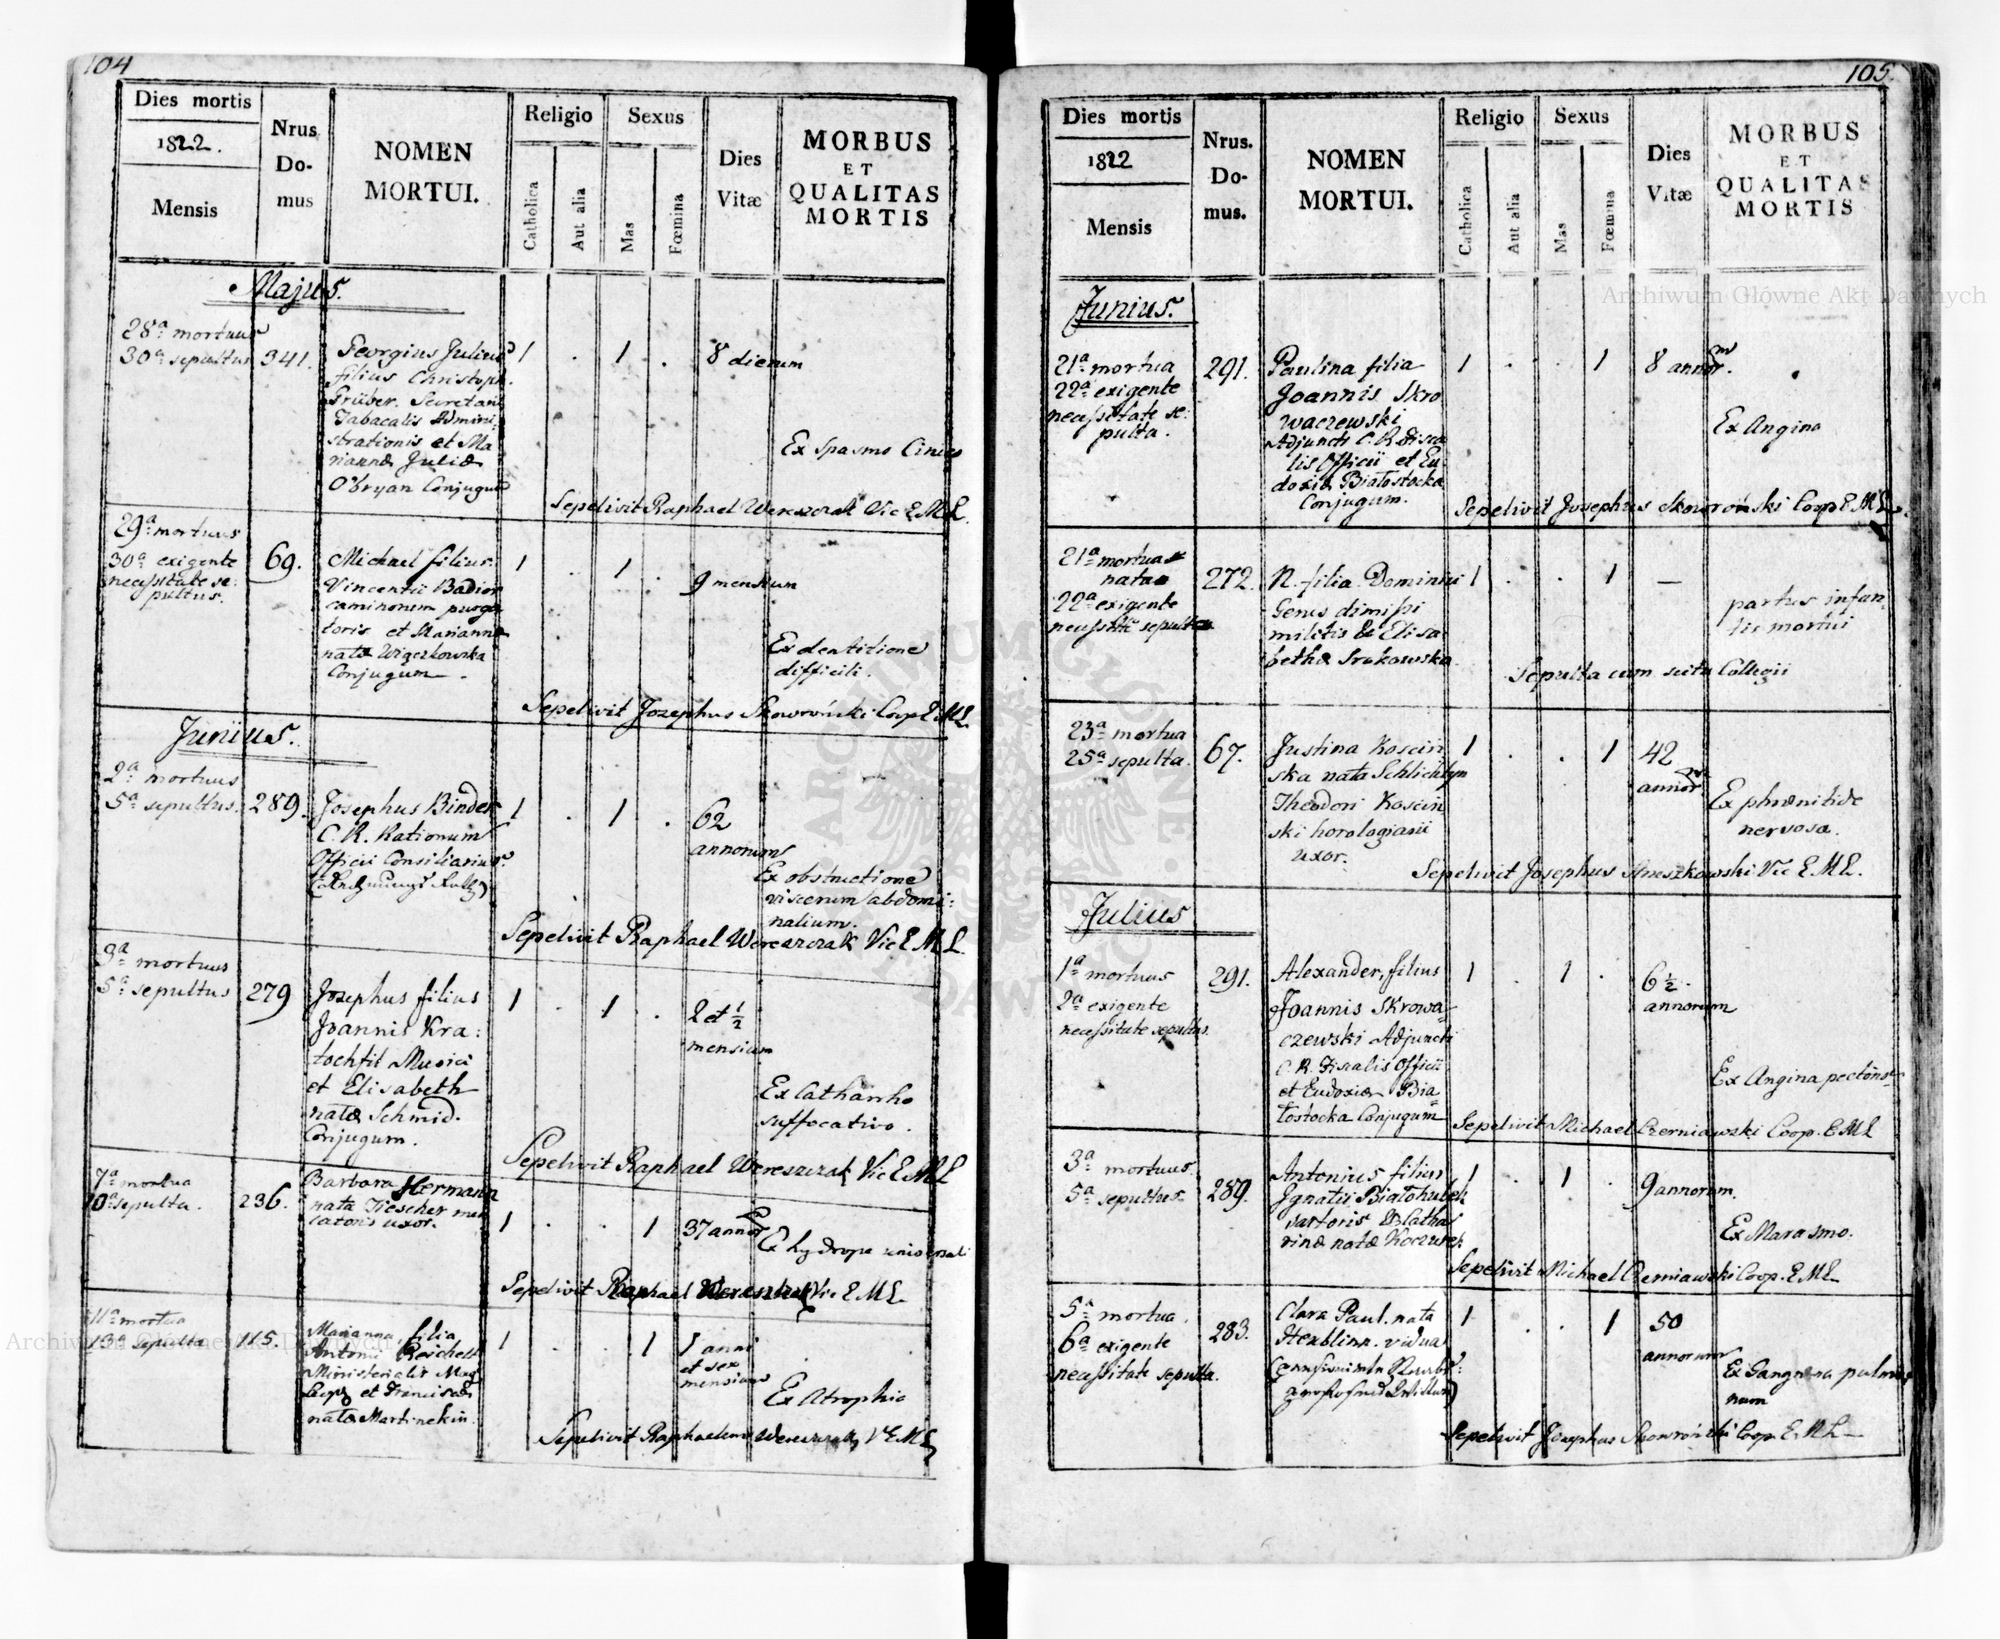 104
Dies mortis
1822.
Mensis
Nrus
Do-
mus
NOMEN
MORTUI.
Religio
Catholica
Aut alia
Sexus
Mas
Fœmina
Dies
Vitæ
MORBUS
ET
QUALITAS
MORTIS
Majus.
28ª mortuus
30ª sepultus
341.
Georgius Julius
filius Christoph.
Grüber. Secretarii
Tabacalis Admini-
strationis et Ma
riannæ Juliæ
O'bryan Conjugum
1 . 1 .
8 dierum
Ex Spasmo Cinico
Sepelivit Raphael Wereszczak Vic E.M.L.
29ª mortuus
30ª exigente
necessitate se:
pultus.
69.
Michael filius
Vincentii Badior
caminorum purga
toris et Mariannæ
natæ Wiączkowska
Conjugum.
1 . 1 .
9 mensium
Ex dentitione
difficili.
Sepelivit Jozephus Skowroński Coop E.M.L.
Junius.
2ª mortuus
5ª sepultus.
289.
Josephus Binder
C. R. Rationum
Officii Consiliarius
1 . 1 .
62
annorum
Ex obstructione
viscerum abdomi:
nalium.
Sepelivit Raphael Wereszczak Vic E.M.L.
3ª mortuus
5ª sepultus
279
Jozephus filius
Joannis Kra:
tochfil Musici
et Elisabeth
natæ Schmid.
Conjugum.
1 . 1 .
2 et ½
mensium
Ex Catharrho
suffocativo.
Sepelivit Raphael Wereszczak Vic E.M.L
7ª mortua
10ª sepulta.
236.
Barbara Hermann
nata Tiescher mer
catoris uxor.
1 . . 1
37 annor
Ex hydrope universali
Sepelivit Raphael Wereszczak Vic E.M.L.
11ª mortua
13ª sepulta
115.
Marianna, filia
Antonii Reichelt
Ministerialis Mag
Leop et Franciscæ
natæ Martinekin.
1 . . 1
1 anni
et sex
mensium
Ex Atrophia
Sepelivit Raphaelem Wereszczak V E.M.L
105.
Dies mortis
1822
Mensis
Nrus.
Do-
mus.
NOMEN
MORTUI.
Religio
Catholica
Aut alia
Sexus
Mas
Fœmina
Dies
Vitæ
MORBUS
ET
QUALITAS
MORTIS
Junius.
21ª mortua
22ª exigente
necessitate se:
pulta.
291.
Paulina filia
Joannis Skro
waczewski
Adjuncti C. R. Fisca
lis Officii et Eu
doxiæ Białostocka
Conjugum.
1 . . 1
8 annor.
Ex Angina
Sepelivit Josephus Skowroński Coop E.M.L.
21ª mortua
nata
22ª exigente
necessitate sepulta
272.
N. filia Dominici
Genus dimissi
militis & Elisa
bethæ Srokowska
1 . . 1
—
partus infan
tis mortui
Sepulta cum scitu Collegii
23ª mortua
25ª sepulta.
67.
Justina Koscin
ska nata Schlichtyn
Theodori Koscin
ski horologiarii
uxor.
1 . . 1
42
annor
Ex phrænitide
nervosa.
Sepelivit Josephus Vic E.M.L.
Julius
1ª mortuus
2ª exigente
necessitate sepultus.
291.
Alexander, filius
Joannis Skrowa=
czewski Adjuncti
C. R. Fiscalis Officii
et Eudoxiæ Bia=
łostocka Conjugum
1 . 1 .
6 ½.
annorum
Ex Angina pectoris
Sepelivit Michael Czerniawski Coop. E.M.L
3ª mortuus.
5ª sepultus
289.
Antonius filius
Ignatii Białohubek
sartoris & Catha
rinæ natæ Koczurek
1 . 1 .
9 annorum.
Ex Marasmo.
Sepelivit Michael Czerniawski Coop. E.M.L
5ª mortua.
6ª exigente
necessitate sepulta.
283.
Clara Paul. nata
Hexblinn. vidua
1 . . 1
50
annorum
Ex Gangræna pulmo
num
Sepelivit Josephus Skowroński Coop E.M.L
Archiwum Główne Akt Dawnych
Archiwum Główne Akt Dawnych
ARCHIWUM GŁÓWNE AKT DAWNYCH